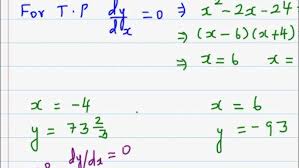 For T.P dy/dx = 0 ⇒ x² - 2x - 24
⇒ (x - 6)(x + 4)
⇒ x = 6 x =
x = -4 x = 6
y = 73 2/3 y = -93
dy/dx = 0